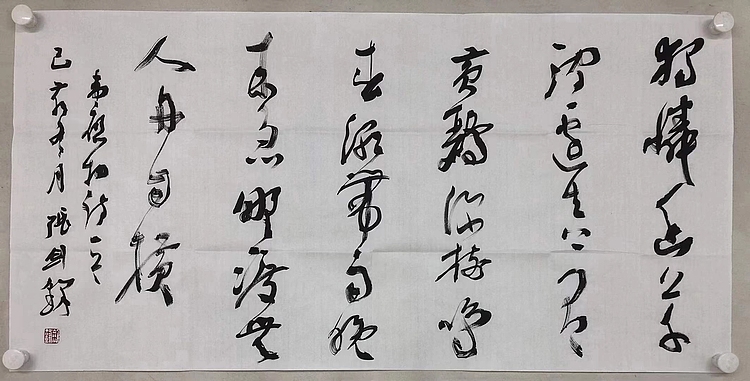 獨憐幽草
澗邊生上有
黃鸝深樹鳴
春潮帶雨晚
來急野渡無
人舟自橫
韋應物詩一首
己亥 月 張劍